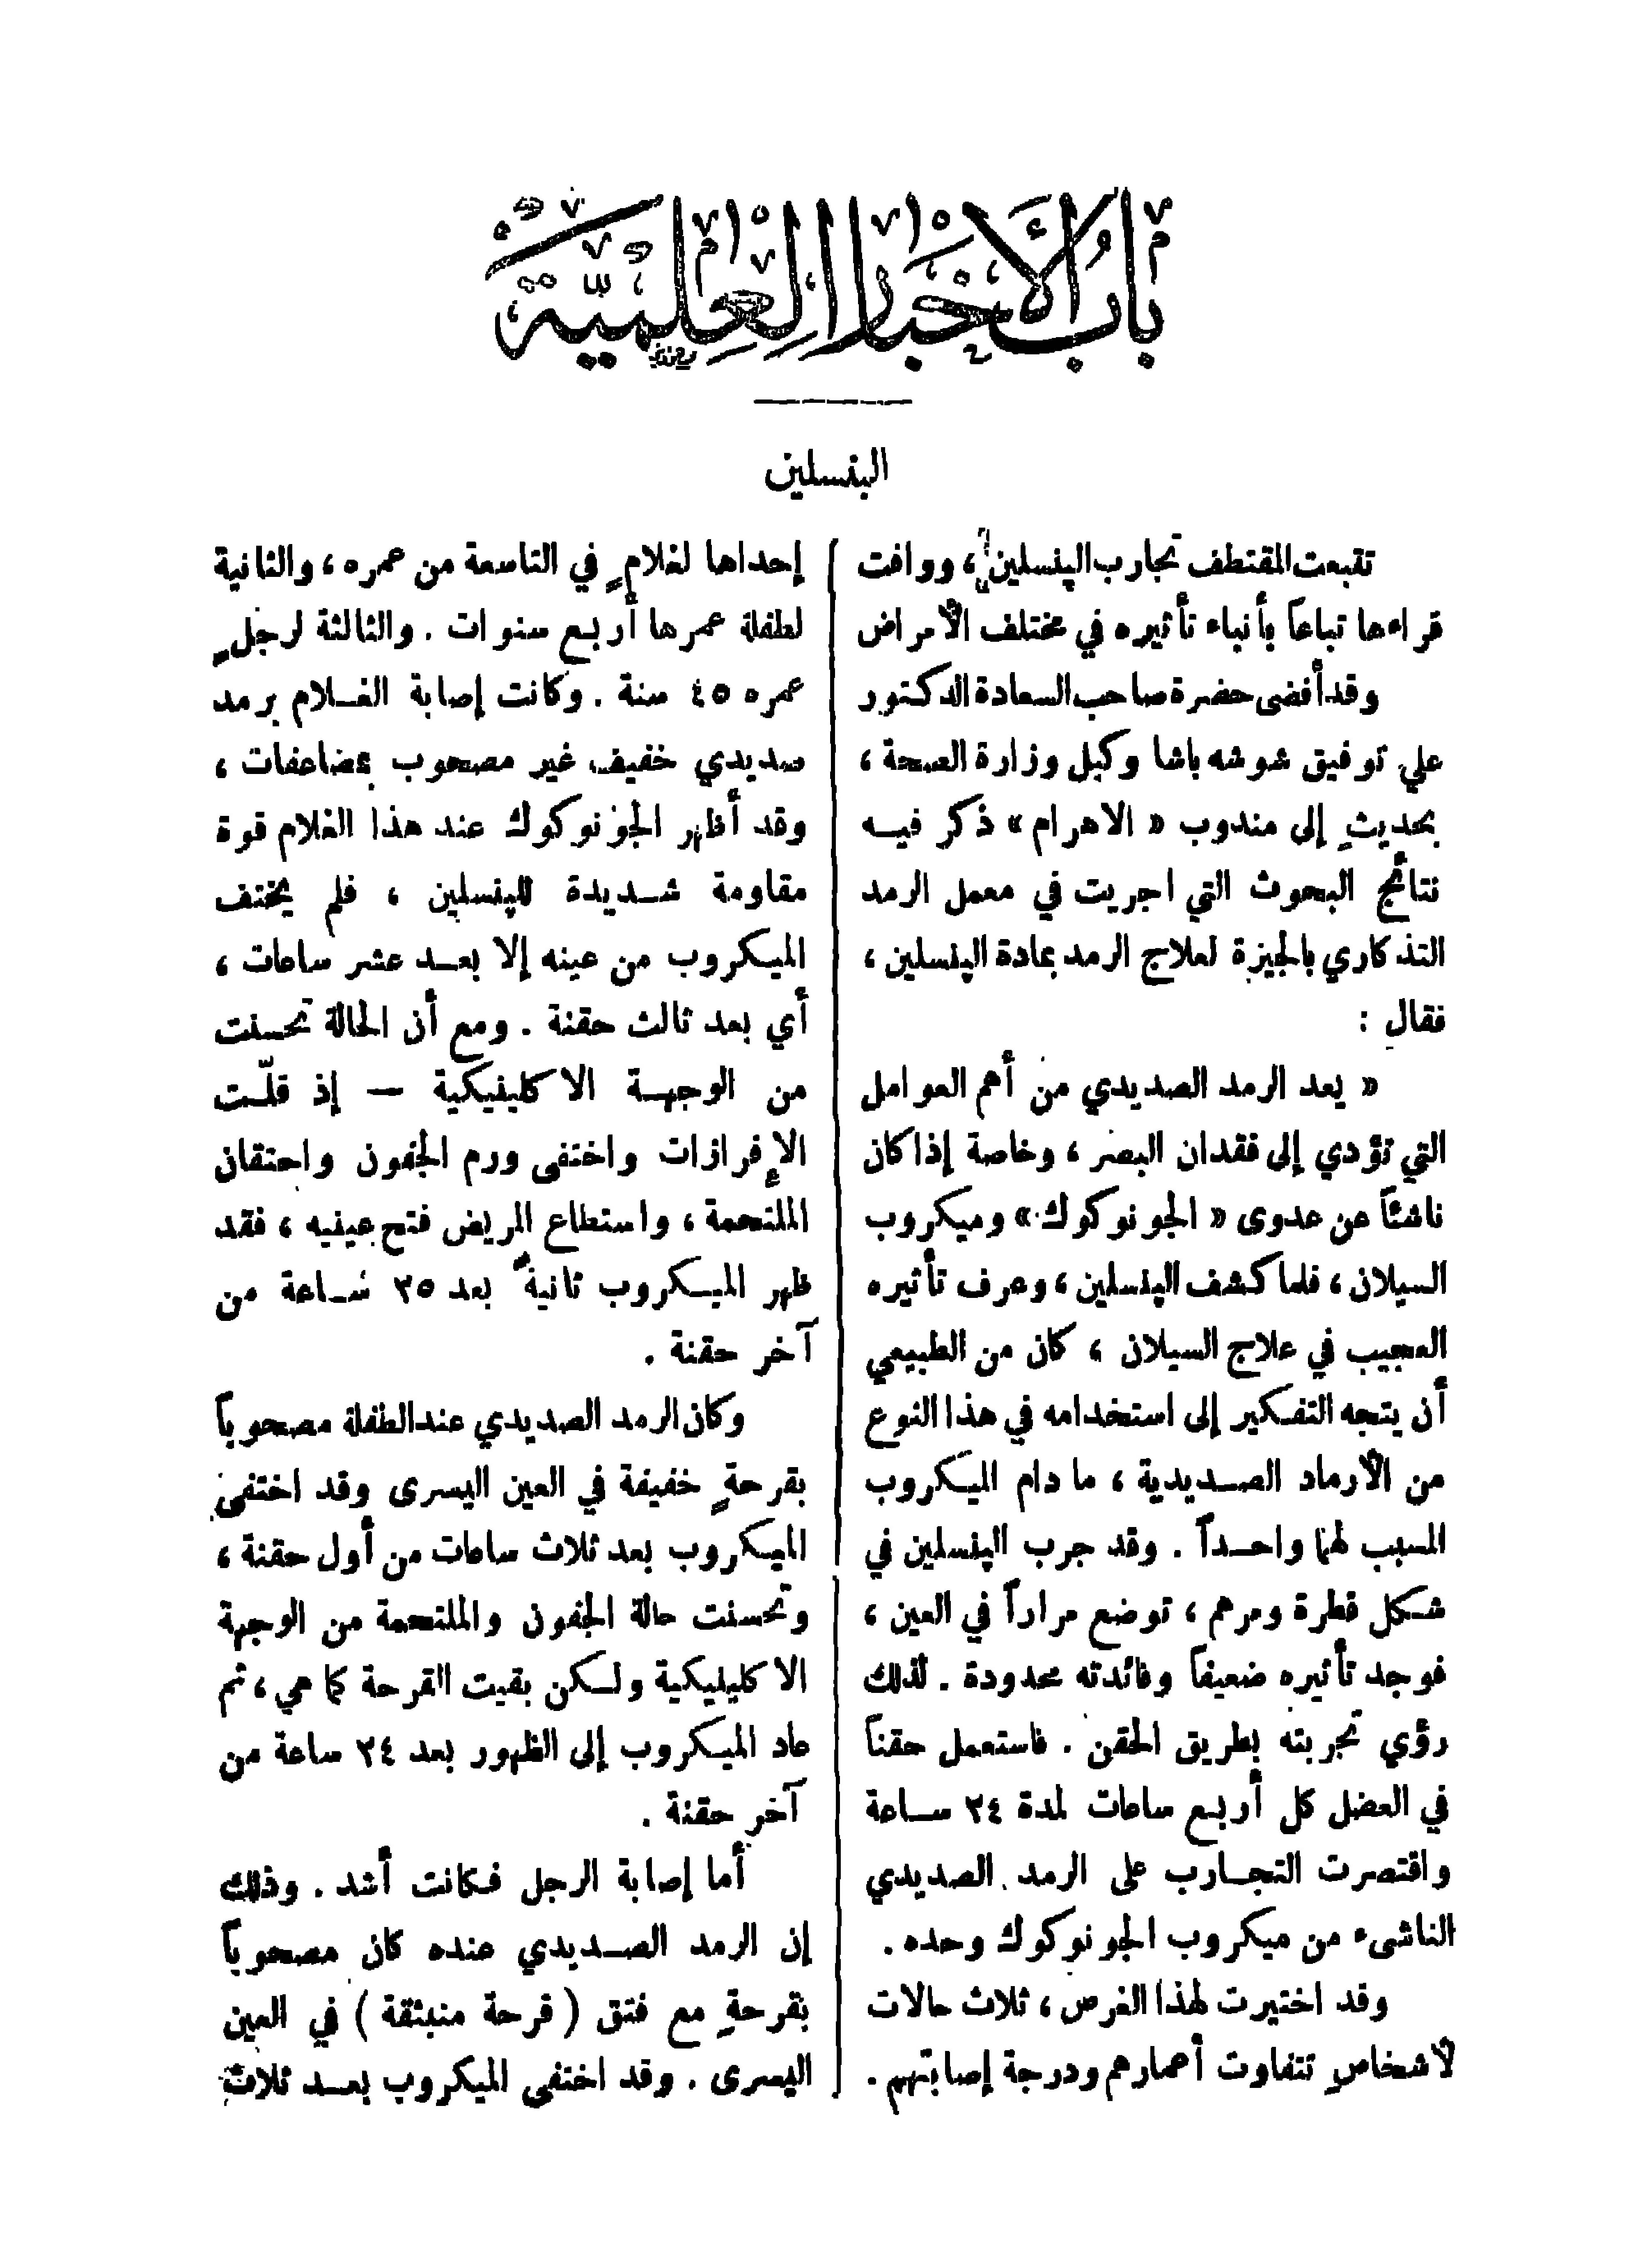 باب الأخبار العلمية
البنسلين
تتبعت المقتطف تجارب الپنسلين، ووافت
قراءها تباعاً بأنباء تأثيره في مختلف الأمراض
وقد أفضى حضرة صاحب السعادة الدكتور
علي توفيق شوشه باشا وكيل وزارة الصحة ،
بحديثٍ إلى مندوب « الاهرام » ذكر فيه
نتائج البحوث التي اجريت في معمل الرمد
التذكاري بالجيزة لعلاج الرمد بمادة الپنسلين ،
فقال :
« يعد الرمد الصديدي من أهم العوامل
التي تؤدي إلى فقدان البصر ، وخاصة إذا كان
ناشئاً عن عدوى « الجونوكوك » وميكروب
السيلان ، فلما كشف الپنسلين ، وعرف تأثيره
العجيب في علاج السيلان ، كان من الطبيعي
أن يتجه التفكير إلى استخدامه في هذا النوع
من الأرماد الصديدية ، ما دام الميكروب
المسبب لهما واحداً . وقد جرب الپنسلين في
شكل قطرة ومرهم ، توضع مراراً في العين ،
فوجد تأثيره ضعيفاً وفائدته محدودة . لذلك
رؤي تجربته بطريق الحقن . فاستعمل حقناً
في العضل كل أربع ساعات لمدة ٢٤ ساعة
واقتصرت التجارب على الرمد الصديدي
الناشىء من ميكروب الجونوكوك وحده .
وقد اختيرت لهذا الغرض ، ثلاث حالات
لأشخاصٍ تتفاوت أعمارهم ودرجة إصابتهم .
إحداها لغلامٍ في التاسعة من عمره ، والثانية
لطفلة عمرها أربع سنوات . والثالثة لرجلٍ
عمره ٤٥ سنة . وكانت إصابة الغلام برمد
صديدي خفيف غير مصحوب بمضاعفات ،
وقد أظهر الجونوكوك عند هذا الغلام قوة
مقاومة شديدة للپنسلين ، فلم يختف
الميكروب من عينه إلا بعد عشر ساعات ،
أي بعد ثالث حقنة . ومع أن الحالة تحسنت
من الوجهة الاكلينيكية — إذ قلّت
الإفرازات واختفى ورم الجفون واحتقان
الملتحمة ، واستطاع المريض فتح عينيه ، فقد
ظهر الميكروب ثانيةً بعد ٣٥ ساعة من
آخر حقنة .
وكان الرمد الصديدي عند الطفلة مصحوباً
بقرحةٍ خفيفة في العين اليسرى وقد اختفى
الميكروب بعد ثلاث ساعات من أول حقنة ،
وتحسنت حالة الجفون والملتحمة من الوجهة
الاكلينيكية ولكن بقيت القرحة كما هي ، ثم
عاد الميكروب إلى الظهور بعد ٢٤ ساعة من
آخر حقنة .
أما إصابة الرجل فكانت أشد . وذلك
إن الرمد الصديدي عنده كان مصحوباً
بقرحةٍ مع فتق ( قرحة منبثقة ) في العين
اليسرى . وقد اختفى الميكروب بعد ثلاث